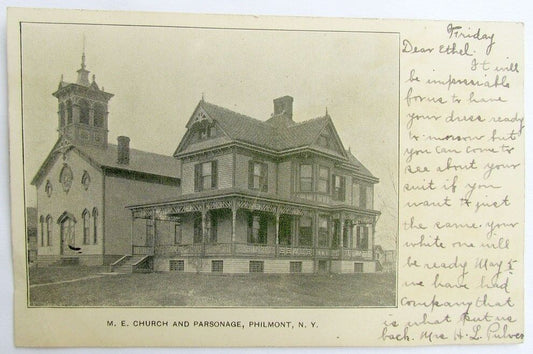 Friday
Dear Ethel.
It will
be imposs­iable
for us to have
your dress ready
to morrow but
you can come to
see about your
suit if you
want to just
the same. your
white one will
be ready May 5
we have had
company that
is what put us
back. Mrs H. L. Pulver
M. E. CHURCH AND PARSONAGE, PHILMONT, N. Y.